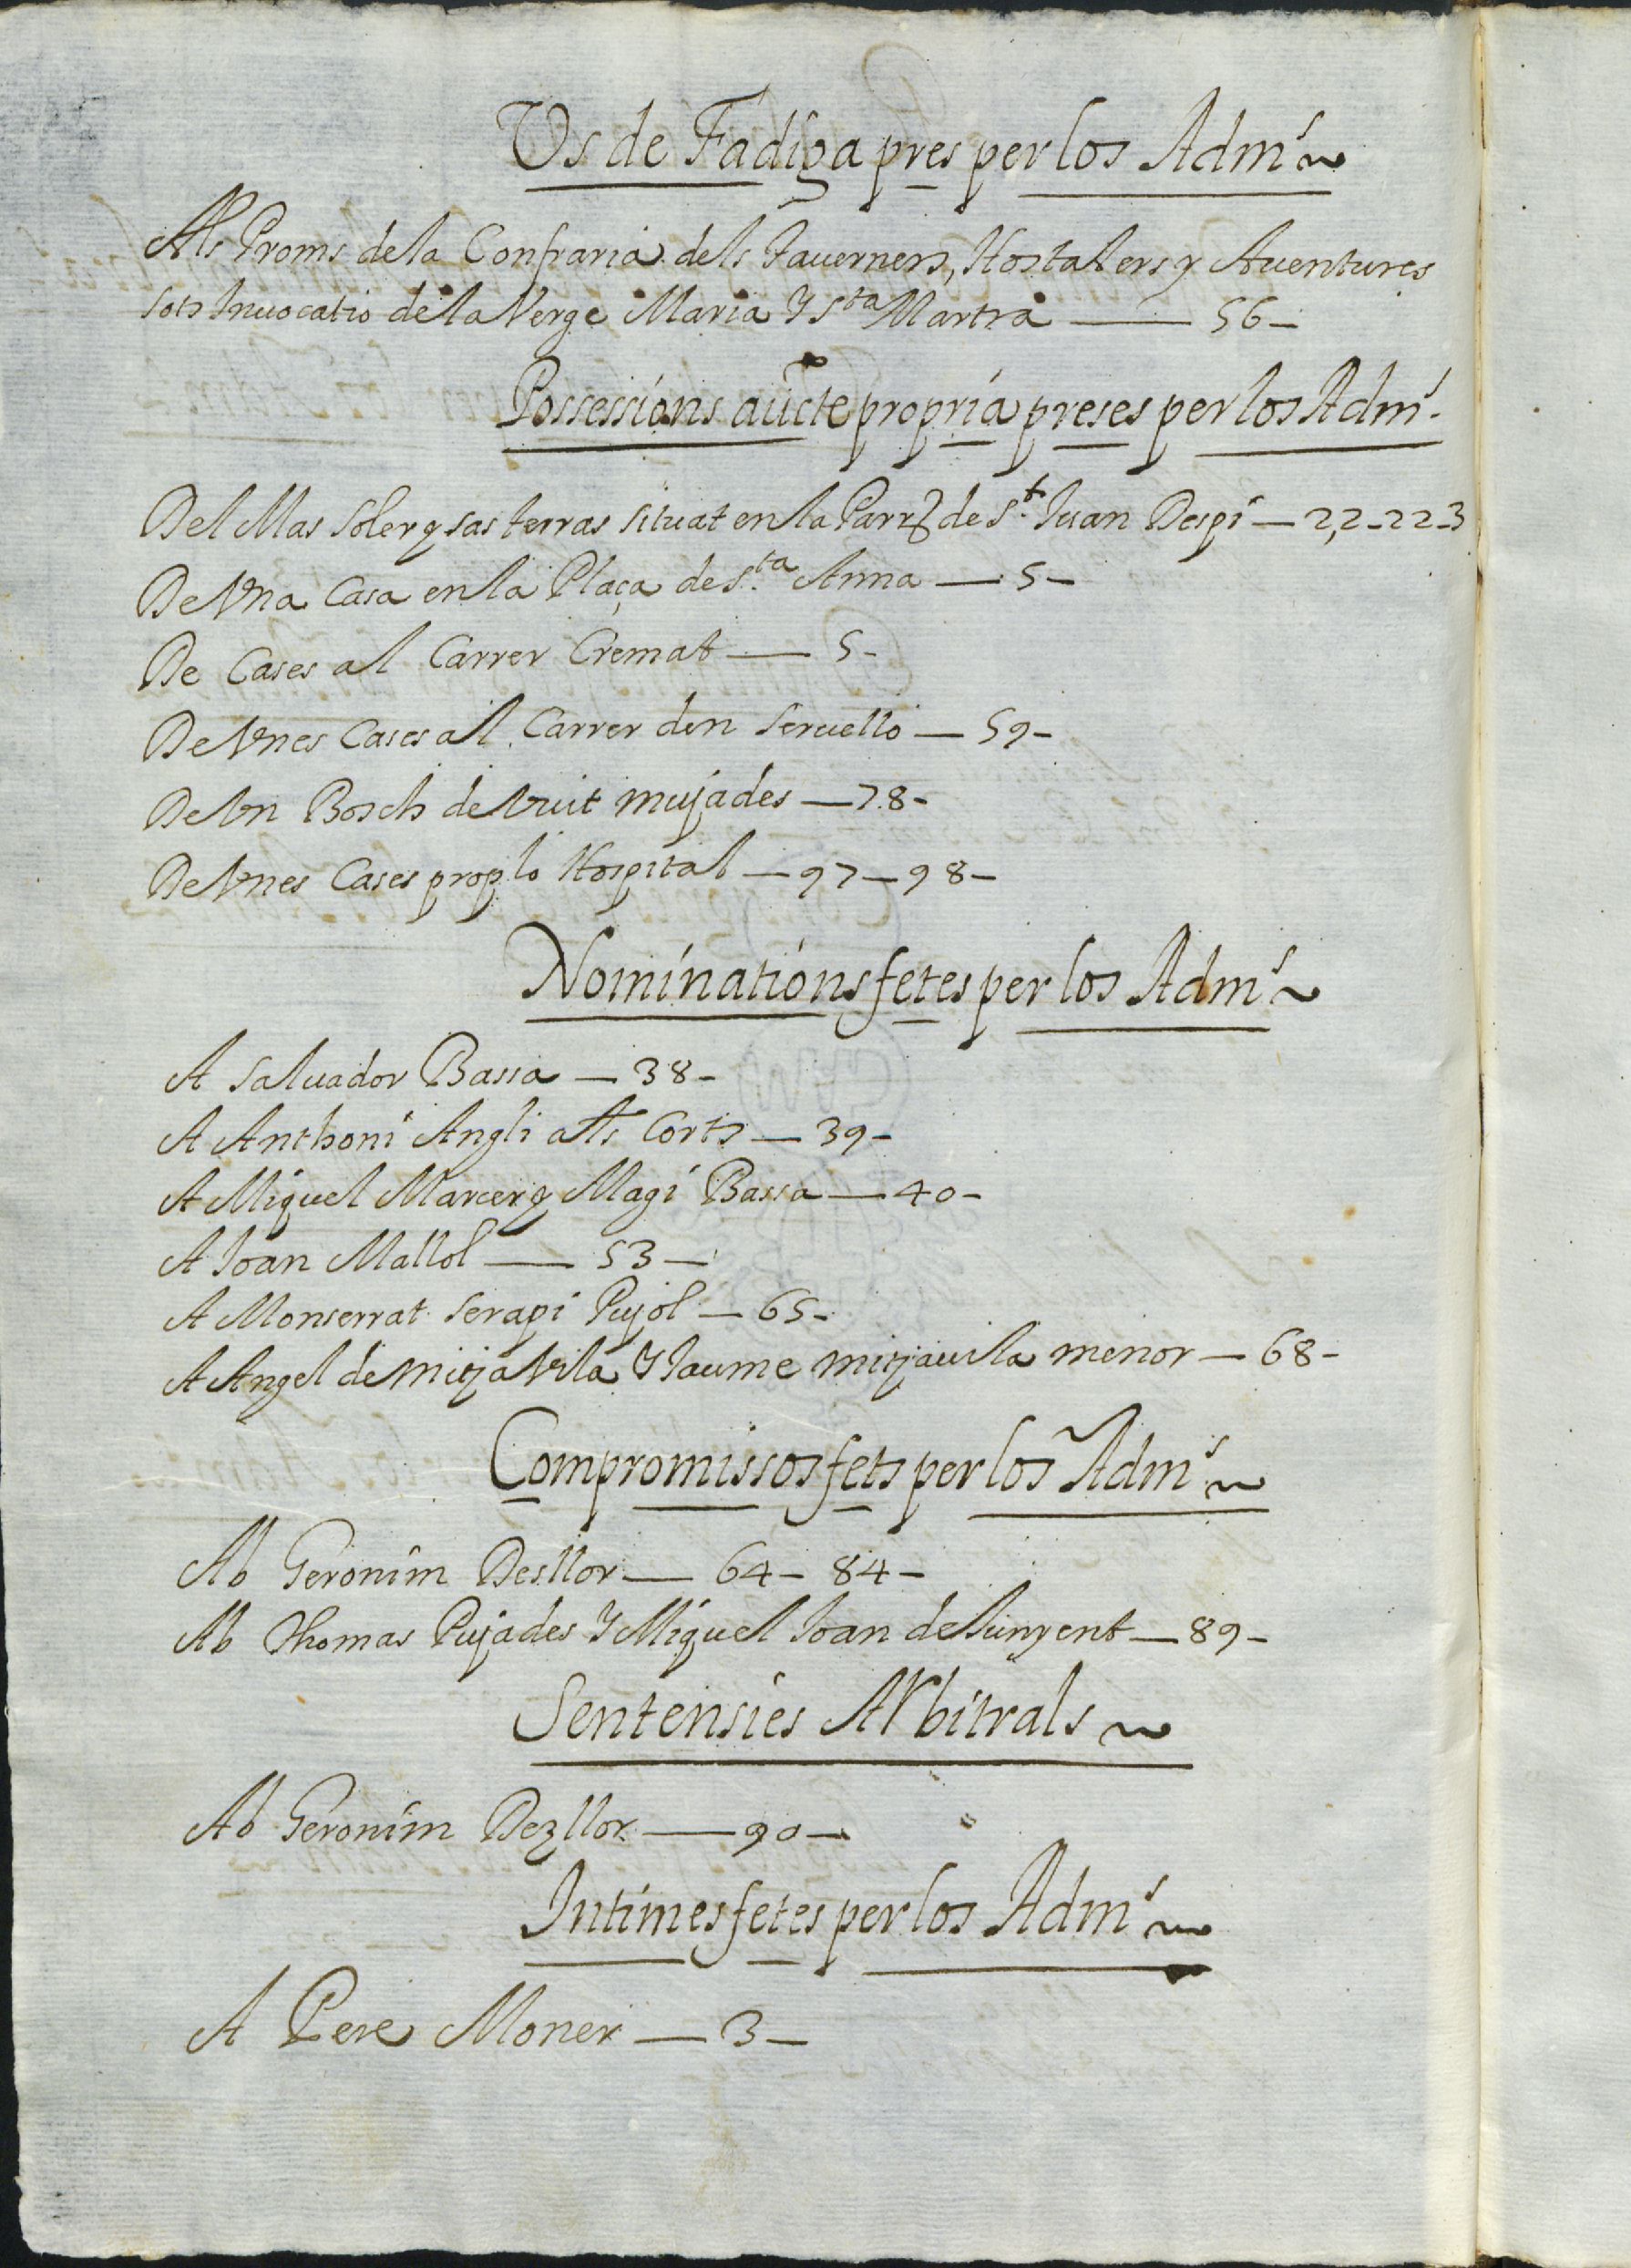 Us de Fadiga pres per los Adm.s
Als Proms de la Confraria dels Tauerners, Hostalers y Auentures
sots Inuocatio de la Verge Maria Y S.ta Martra — 56 —
Possessions aucte propria preses per los Adm.s
Del Mas Soler y sas terras situat en la Parr.a de S.t Juan Despi — 22 - 22 - 3
De Vna Casa en la Plaça de S.ta Anna — 5 —
De Cases al Carrer Cremat — 5 -
De Vnes Cases al Carrer den Seruello — 59 -
De Vn Bosch de Vuit mujades — 78 -
De Vnes Cases prop lo Hospital — 97 — 98 —
Nominations fetes per los Adm.s
A Saluador Bassa — 38 -
A Anthoni Angli als Corts — 39 -
A Miquel Marcer y Magi Bassa — 40 -
A Joan Mallol — 53 —
A Monserrat Serapi Pujol — 65 -
A Angel de mitja Vila Y Jaume mitjauila menor — 68 -
Compromissos fets per los Adm.s
Ab Geronim Desllor — 64 - 84 -
Ab Thomas Pujades Y Miquel Joan de Junyent — 89 -
Sentensies Arbitrals
Ab Geronim Dezllor — 90 —
Intimes fetes per los Adm.s
A Pere Moner — 3 —